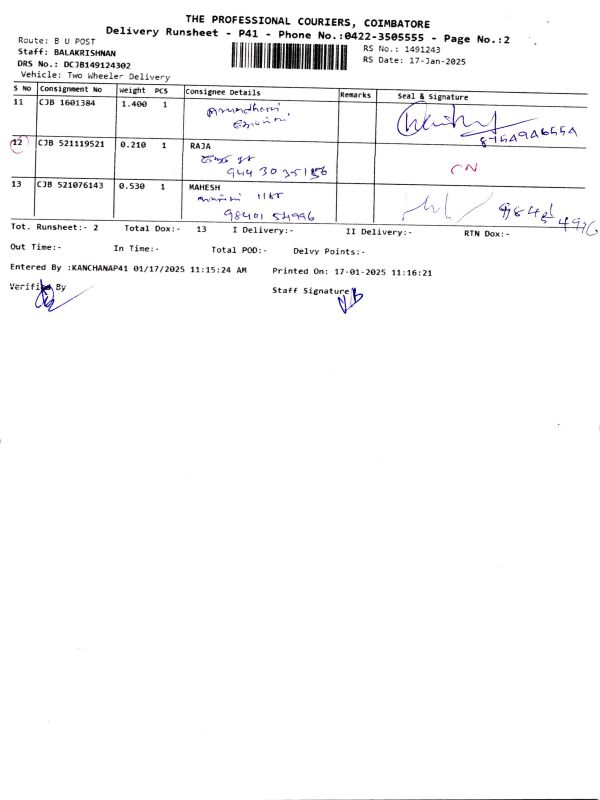 THE PROFESSIONAL COURIERS, COIMBATORE
Delivery Runsheet - P41 - Phone No.:0422-3505555 - Page No.:2
Route: B U POST
RS No.: 1491243
Staff: BALAKRISHNAN
RS Date: 17-Jan-2025
DRS No.: DCJB149124302
Vehicle: Two Wheeler Delivery
S No Consignment No Weight PCS Consignee Details Remarks Seal & Signature
11 CJB 1601384 1.400 1
12 CJB 521119521 0.210 1 RAJA
CN
13 CJB 521076143 0.530 1 MAHESH
98401 54996
Tot. Runsheet:- 2 Total Dox:- 13 I Delivery:- II Delivery:- RTN Dox:-
Out Time:- In Time:- Total POD:- Delvy Points:-
Entered By :KANCHANAP41 01/17/2025 11:15:24 AM Printed On: 17-01-2025 11:16:21
Verified By
Staff Signature